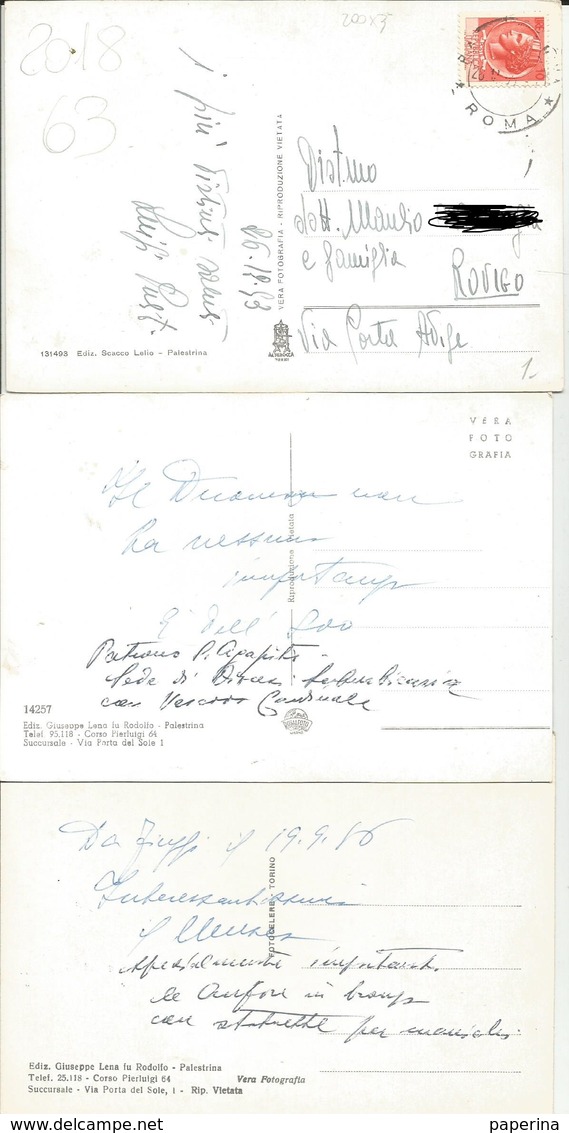 200x3
2018
63
ROMA
i più distinti saluti
Luigi
26.12.53
VERA FOTOGRAFIA - RIPRODUZIONE VIETATA
Dist.mo
dott. Manlio
e famiglia
ROVIGO
Via Porta Adige
1-
131493 Ediz. Scacco Lelio - Palestrina
VERA
FOTO
GRAFIA
Il Duomo non
ha nessuna
importanza
È dell'
Riproduzione Vietata
Patrono S. Agapito
Sede di Diocesi Suburbicaria
con Vescovo Cardinale
14257
Ediz. Giuseppe Lena fu Rodolfo - Palestrina
Telef. 95.118 - Corso Pierluigi 64
Succursale - Via Porta del Sole 1
Da Fiuggi il 19.9.86
Interessantissimo
il Museo
FOTOCELERE TORINO
specialmente importanti
le anfore in bronzo
con statuette per manici
Ediz. Giuseppe Lena fu Rodolfo - Palestrina
Telef. 25.118 - Corso Pierluigi 64 Vera Fotografia
Succursale - Via Porta del Sole, 1 - Rip. Vietata
paperina